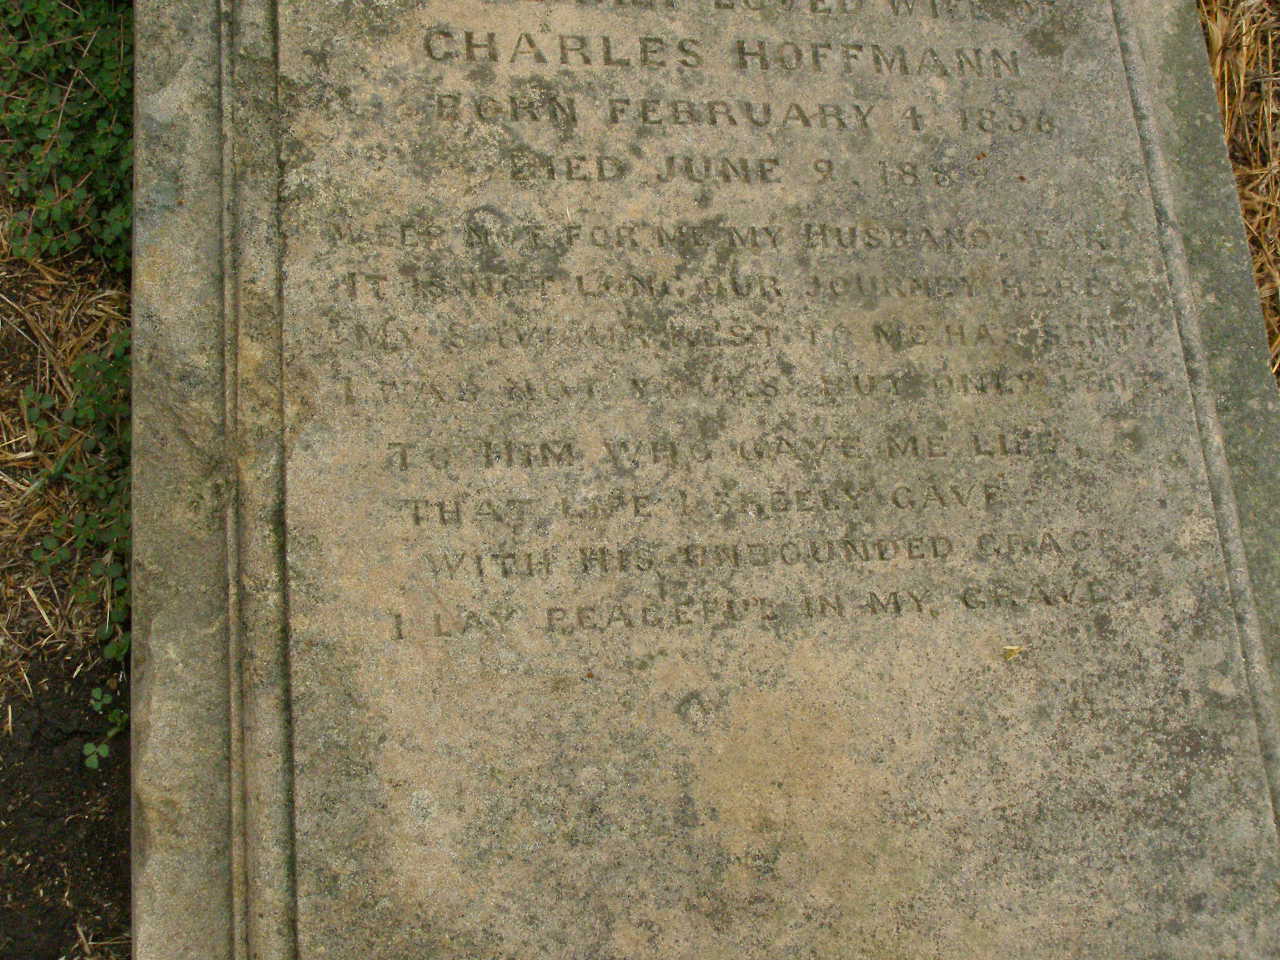 LOVED WIFE OF
CHARLES HOFFMANN
BORN FEBRUARY 4 1856
DIED JUNE 9. 1889.
WEEP NOT FOR ME MY HUSBAND DEAR
IT IS NOT LONG OUR JOURNEY HERE
MY SAVIOUR REST TO ME HAS SENT
I WAS NOT YOURS BUT ONLY LENT
TO HIM WHO GAVE ME LIFE, I
THAT LIFE I FREELY GAVE
WITH HIS UNBOUNDED GRACE
I LAY PEACEFUL IN MY GRAVE